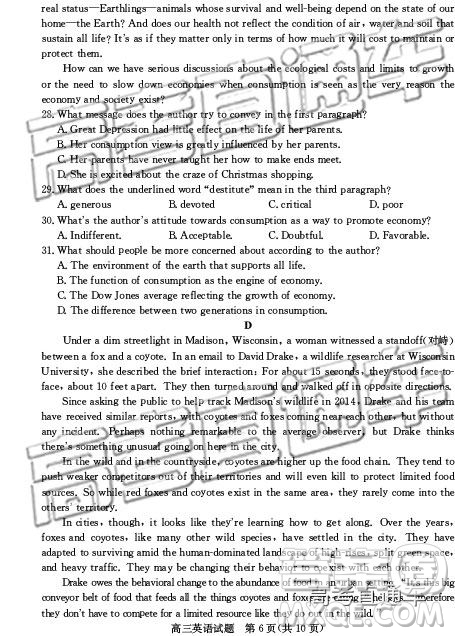 real status—Earthlings—animals whose survival and well-being depend on the state of our
home—the Earth? And does our health not reflect the condition of air, water and soil that
sustain all life? It's as if they matter only in terms of how much it will cost to maintain or
protect them.
How can we have serious discussions about the ecological costs and limits to growth
or the need to slow down economies when consumption is seen as the very reason the
economy and society exist?
28. What message does the author try to convey in the first paragraph?
A. Great Depression had little effect on the life of her parents.
B. Her consumption view is greatly influenced by her parents.
C. Her parents have never taught her how to make ends meet.
D. She is excited about the craze of Christmas shopping.
29. What does the underlined word “destitute” mean in the third paragraph?
A. generous B. devoted C. critical D. poor
30. What's the author's attitude towards consumption as a way to promote economy?
A. Indifferent. B. Acceptable. C. Doubtful. D. Favorable.
31. What should people be more concerned about according to the author?
A. The environment of the earth that supports all life.
B. The function of consumption as the engine of economy.
C. The Dow Jones average reflecting the growth of economy.
D. The difference between two generations in consumption.
D
Under a dim streetlight in Madison, Wisconsin, a woman witnessed a standoff(对峙)
between a fox and a coyote. In an email to David Drake, a wildlife researcher at Wisconsin
University, she described the brief interaction: For about 15 seconds, they stood face-to-
face, about 10 feet apart. They then turned around and walked off in opposite directions.
Since asking the public to help track Madison's wildlife in 2014, Drake and his team
have received similar reports, with coyotes and foxes coming near each other, but without
any incident. Perhaps nothing remarkable to the average observer, but Drake thinks
there's something unusual going on here in the city.
In the wild and in the countryside, coyotes are higher up the food chain. They tend to
push weaker competitors out of their territories and will even kill to protect limited food
sources. So while red foxes and coyotes exist in the same area, they rarely come into the
others' territory.
In cities, though, it looks like they're learning how to get along. Over the years,
foxes and coyotes, like many other wild species, have settled in the city. They have
adapted to surviving amid the human-dominated landscape of high-rises, split green space,
and heavy traffic. They may be changing their behavior to coexist with each other.
Drake owes the behavioral change to the abundance of food in an urban setting. “It's this big
conveyor belt of food that feeds all the things coyotes and foxes are eating. He says. “Therefore
they don't have to compete for a limited resource like they do out in the wild.”
高三英语试题 第 6 页(共 10 页)
高考直通车